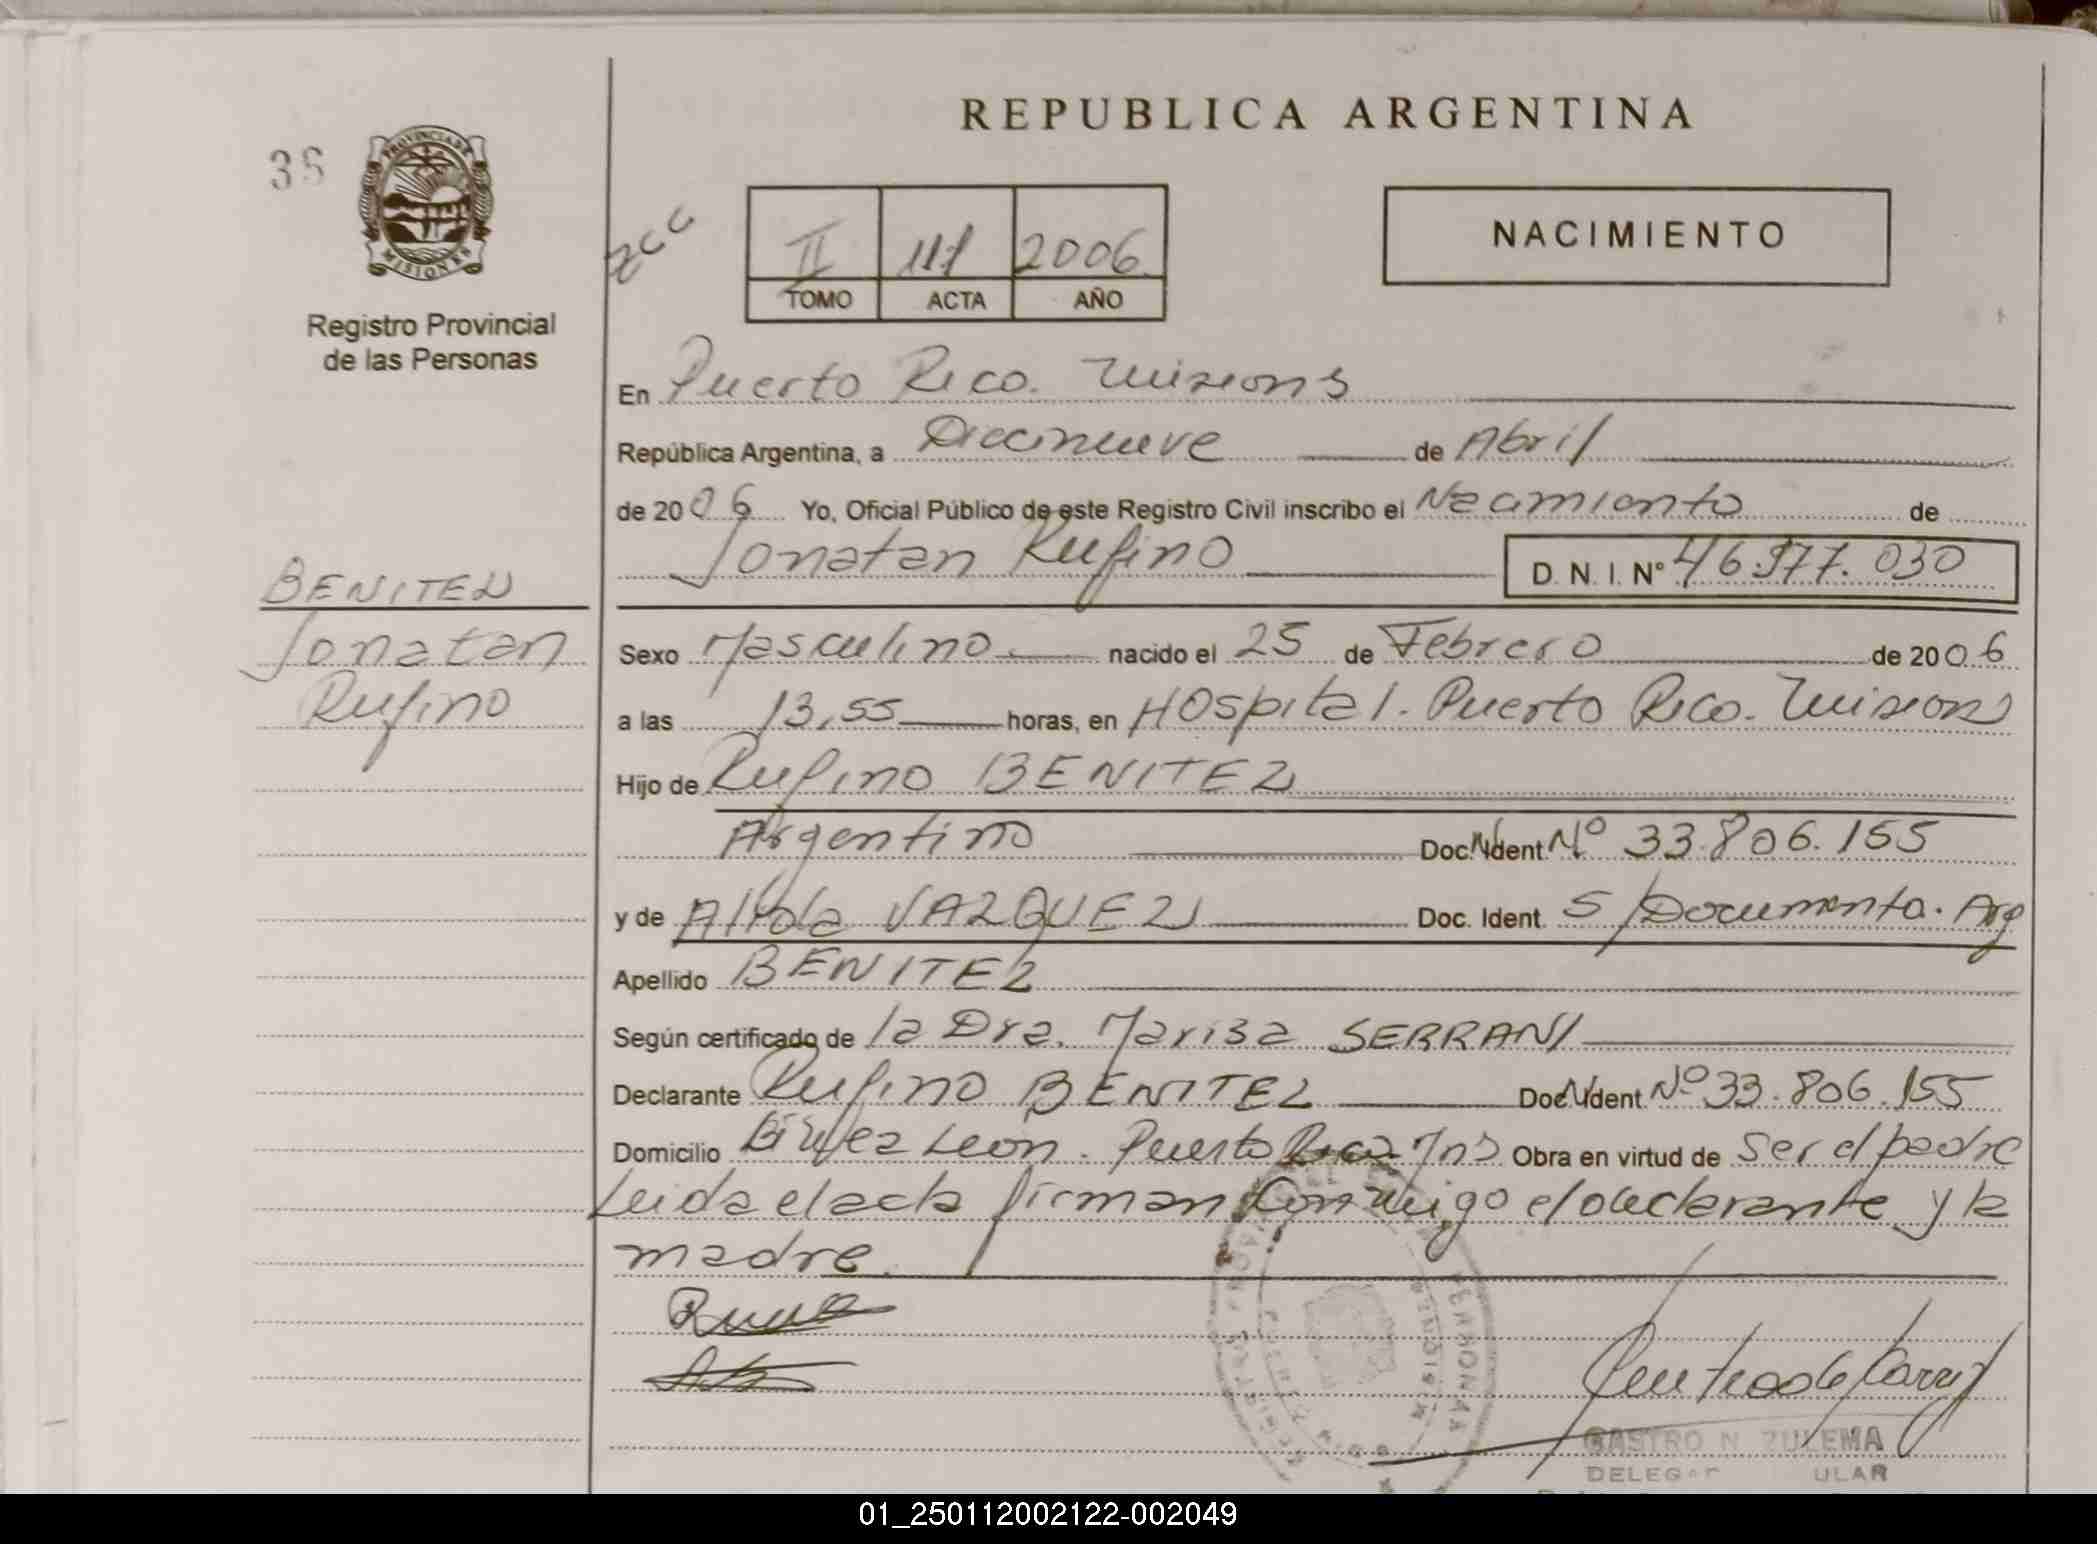 35
PROVINCIA DE
MISIONES
Registro Provincial
de las Personas
BENITEZ
Jonatan
Rufino
REPUBLICA ARGENTINA
II 111 2006
TOMO ACTA AÑO
NACIMIENTO
En Puerto Rico. Misiones
República Argentina, a Diecinueve de Abril
de 2006 Yo, Oficial Público de este Registro Civil inscribo el Nacimiento de
Jonatan Rufino D.N.I. Nº 46.977.030
Sexo Masculino nacido el 25 de Febrero de 2006
a las 13,55 horas, en Hospital. Puerto Rico. Misiones
Hijo de Rufino BENITEZ
Argentino Doc. Ident. Nº 33.806.155
y de VAZQUEZ Doc. Ident. S/Documento. Arg
Apellido BENITEZ
Según certificado de la Dra. Marisa SERRANI
Declarante Rufino BENITEZ Doc. Ident. Nº 33.806.155
Domicilio Leon. Puerto Rico Mns Obra en virtud de ser el padre
Leida el acta firman conmigo el declarante y la
madre.
CASTRO N. ZULEMA
01_250112002122-002049